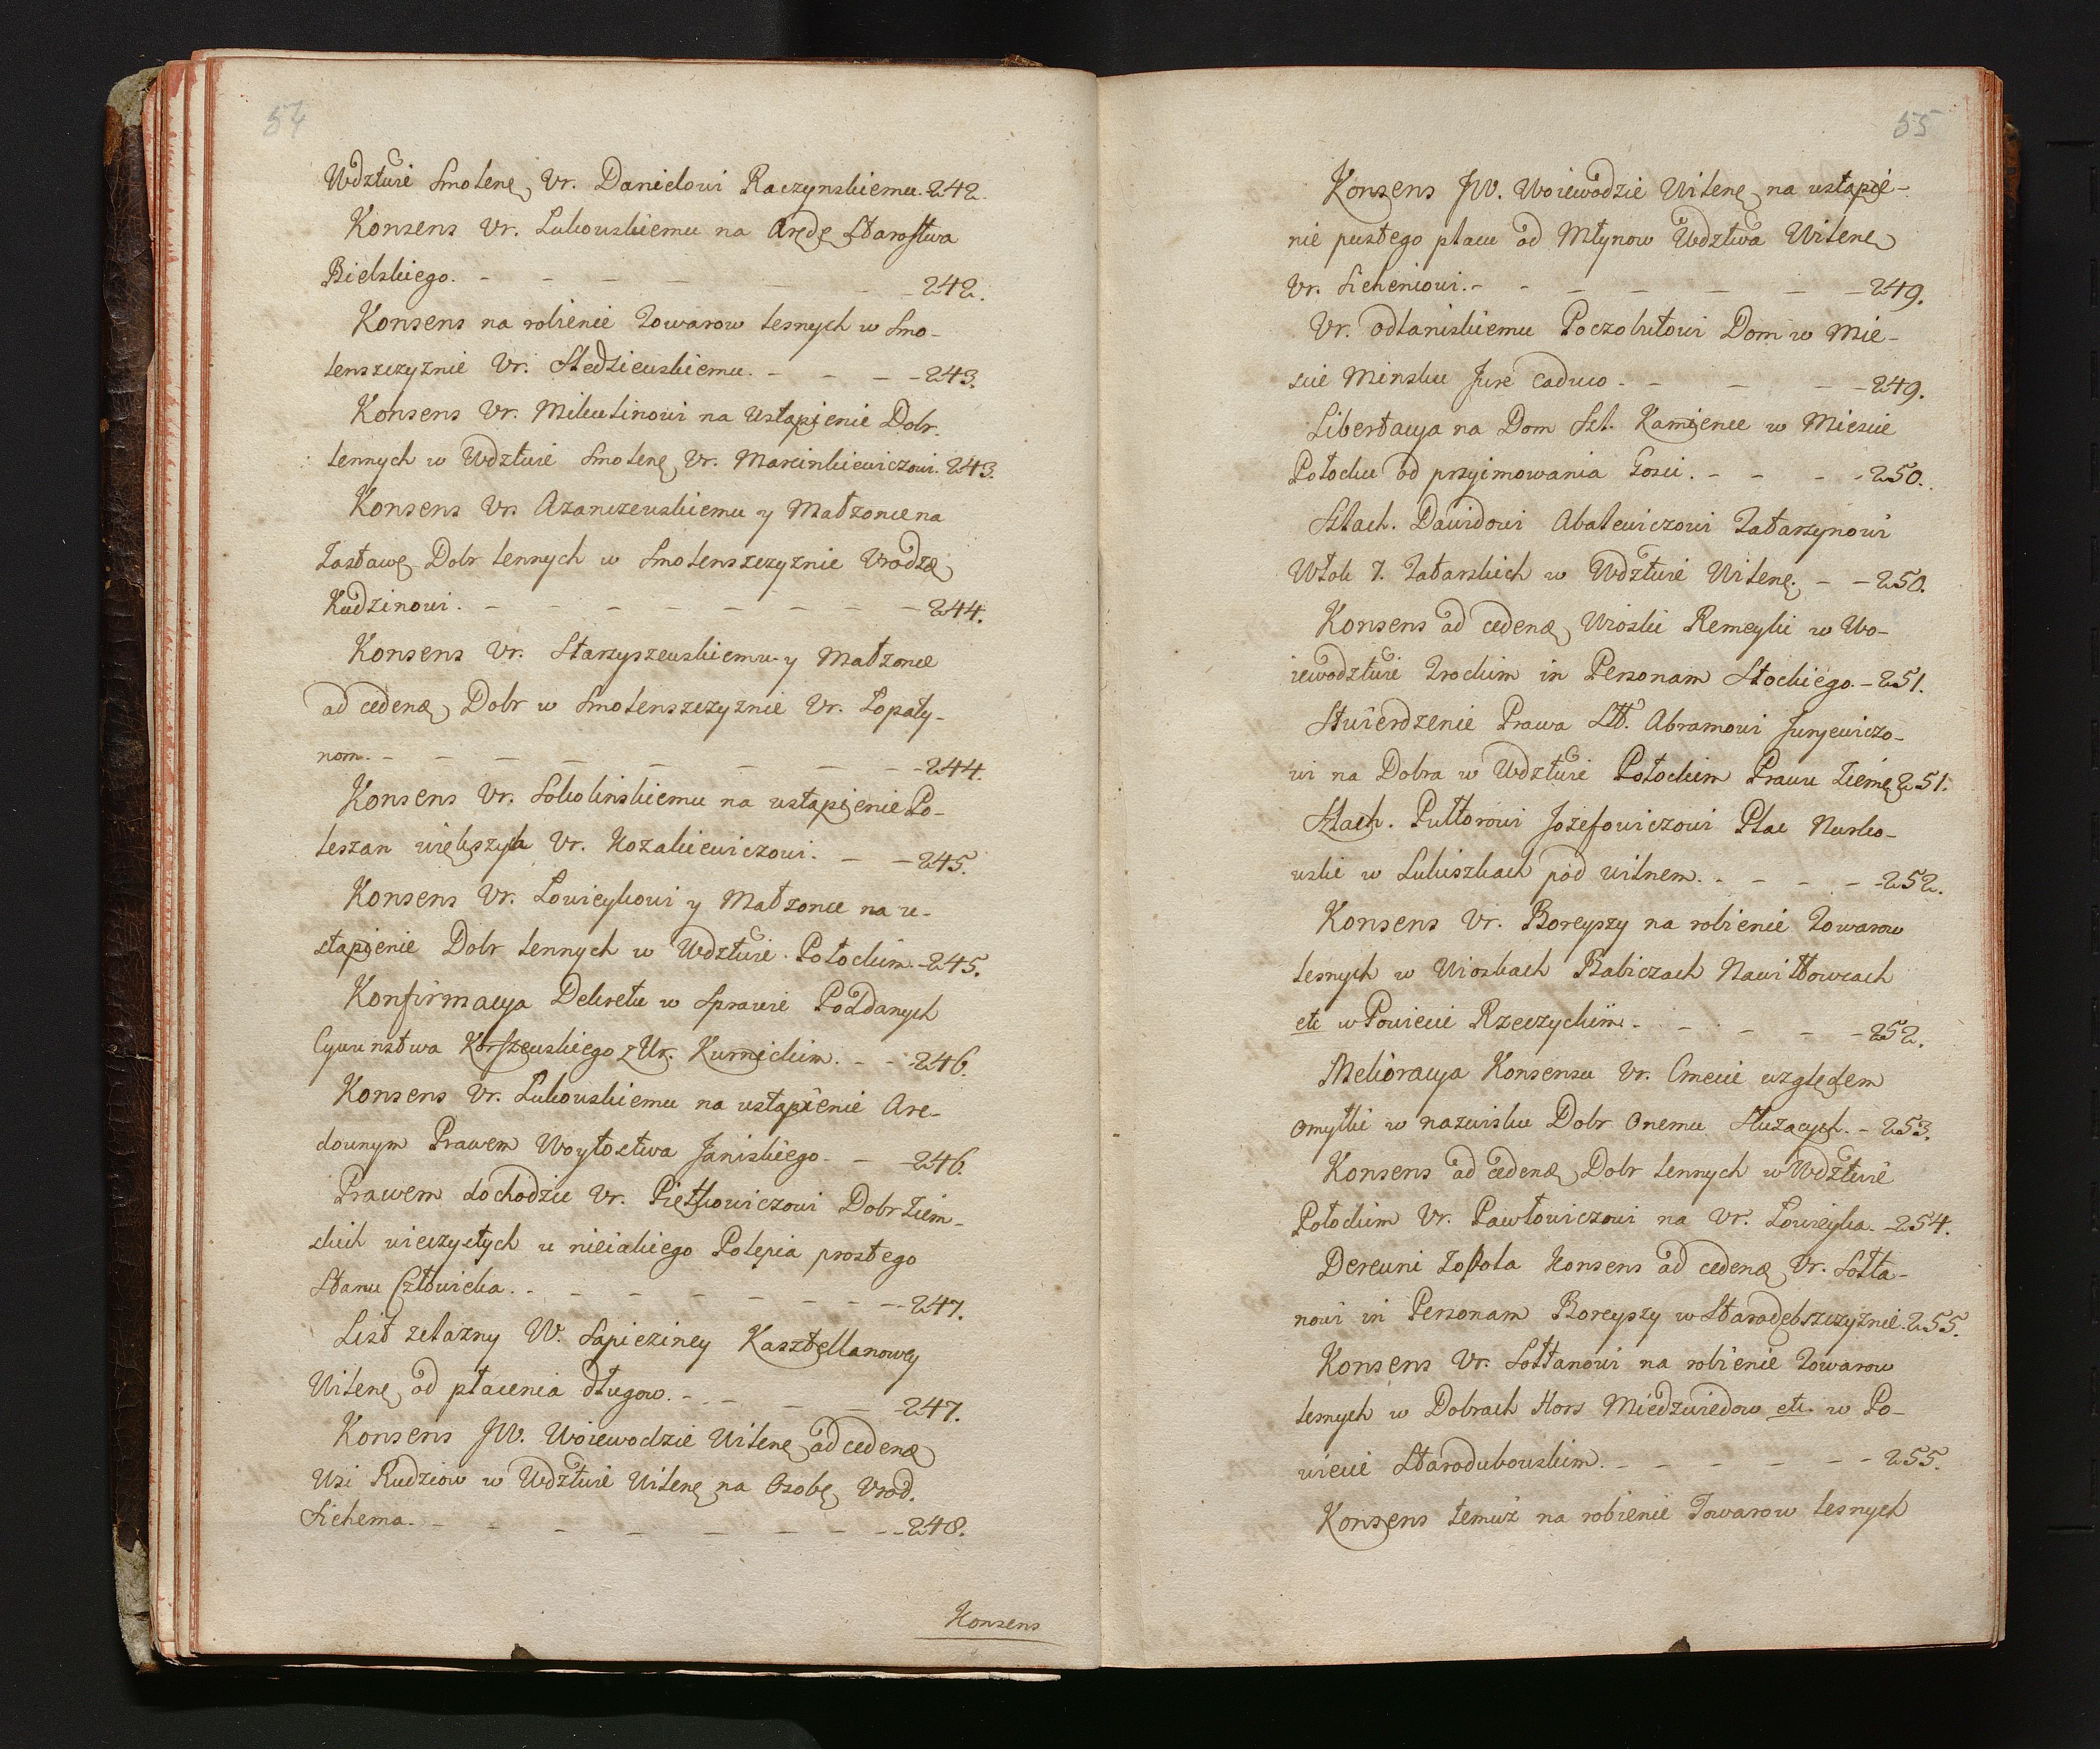 54
Wdztwie Smolenę Vr. Danielowi Raczynskiemu. 242.
Konsens Vr. Lukowskiemu na Arędę Starostwa
Bielskiego. - - - - - - - 242.
Konsens na robienie Towarow lesnych w Smo-
lenszczyznie Vr. Sledziewskiemu. - - - 243.
Konsens Vr. Mikulinowi na Ustąpienie Dobr.
lennych w Wdztwie Smolenę Vr. Marcinkiewiczowi. 243.
Konsens Vr. Azanczewskiemu y Małzonce na
Zastawę Dobr lennych w Smolenszczyznie Vrodzę
Kudzinowi. - - - - - - - - 244.
Konsens Vr. Starzyszewskiemu y Małzonce
ad cedenę Dobr w Smolenszczyznie Vr. Łopaty-
nom. - - - - - - - - 244.
Konsens Vr. Sokolinskiemu na ustąpienie Po-
leszan większych Vr. Kozakiewiczowi. - - 245.
Konsens Vr. Łowieykowi y Małzonce na u-
stąpienie Dobr lennych w Wdztwie Połockim. - 245.
Konfirmacya Dekretu w Sprawie Poddanych
Cywunstwa Korszewskiego z Ur. Kurnickim. - - 246.
Konsens Vr. Lukowskiemu na ustąpienie Arę-
downym Prawem Woytostwa Janiskiego. - - 246.
Prawem dochodzic Vr. Piętkowiczowi Dobr Ziem-
skich wieczystych u nieiakiego Polepia prostego
Stanu Człowieka. - - - - - - - 247.
List zelazny W. Sapiezinej Kasztellanowey
Wilenę od płacenia długow. - - - - 247.
Konsens JW. Woiewodzie Wilenę ad cedenę
Wsi Rudziow w Wdztwie Wilenę na Osobę Vrod.
Sichema. - - - - - - - - 248.
Konsens
55
Konsens JW. Woiewodzie Wilenę na ustąpie-
nie pustego placu od Młynow Wdztwa Wilenę
Vr. Sicheniowi. - - - - - - - 249.
Vr. Odlaniskiemu Poczobutowi Dom w Mie-
scie Minsku Jure Caduco - - - - 249.
Libertacya na Dom Szl. Kamience w Miescie
Połocku od przyimowania Gosci. - - - - 250.
Szlach. Dawidowi Abalewiczowi Tatarzynowi
Włok 7. Tatarskich w Wdztwie Wilenę. - - 250.
Konsens ad cedenę Wioski Remeyki w Wo-
iewodztwie Trockim in Personam Stockiego. - 251.
Stwierdzenie Prawa Stt. Abramowi Jurjewiczo-
wi na Dobra w Wdztwie Połockim Prawu Ziemę 251.
Szlach. Puttorowi Jozefowiczowi Plac Nurko-
wski w Lukiszkach pod Wilnem. - - - - 252.
Konsens Vr. Boreyszy na robienie Towarow
lesnych w Wioskach Babiczach Nawittowcach
etc w Powiecie Rzeczyckim. - - - - - 252.
Melioracya Konsensu Vr. Cmecie względem
omyłki w nazwisku Dobr Onemu Służących. - 253.
Konsens ad cedenę Dobr lennych w Wdztwie
Połockim Vr. Pawłowiczowi na Vr. Łowieyka. - 254.
Derewni Zopola Konsens ad cedenę Vr. Sołta-
nowi in Personam Boreyszy w Starodębszczyznie. 255.
Konsens Vr. Sołtanowi na robienie Towarow
lesnych w Dobrach Hors Miedzwiedow etc. w Po-
wiecie Starodubowskim. - - - - - - 255.
Konsens temuż na robienie Towarow lesnych